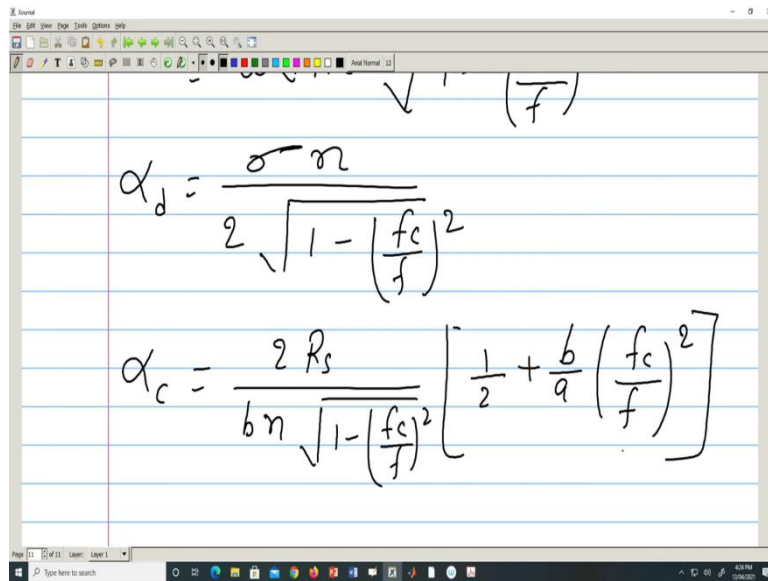 Xournal
File Edit View Page Tools Options Help
Arial Normal 12
√ 1 - ( / f )
α_d = σ η / 2 √(1 - (fc / f)^2)
α_c = 2 Rs / b η √(1 - (fc / f)^2) [ 1/2 + b/a (fc / f)^2 ]
Page 11 of 11 Layer: Layer 1
Type here to search
4:24 PM
13/04/2021